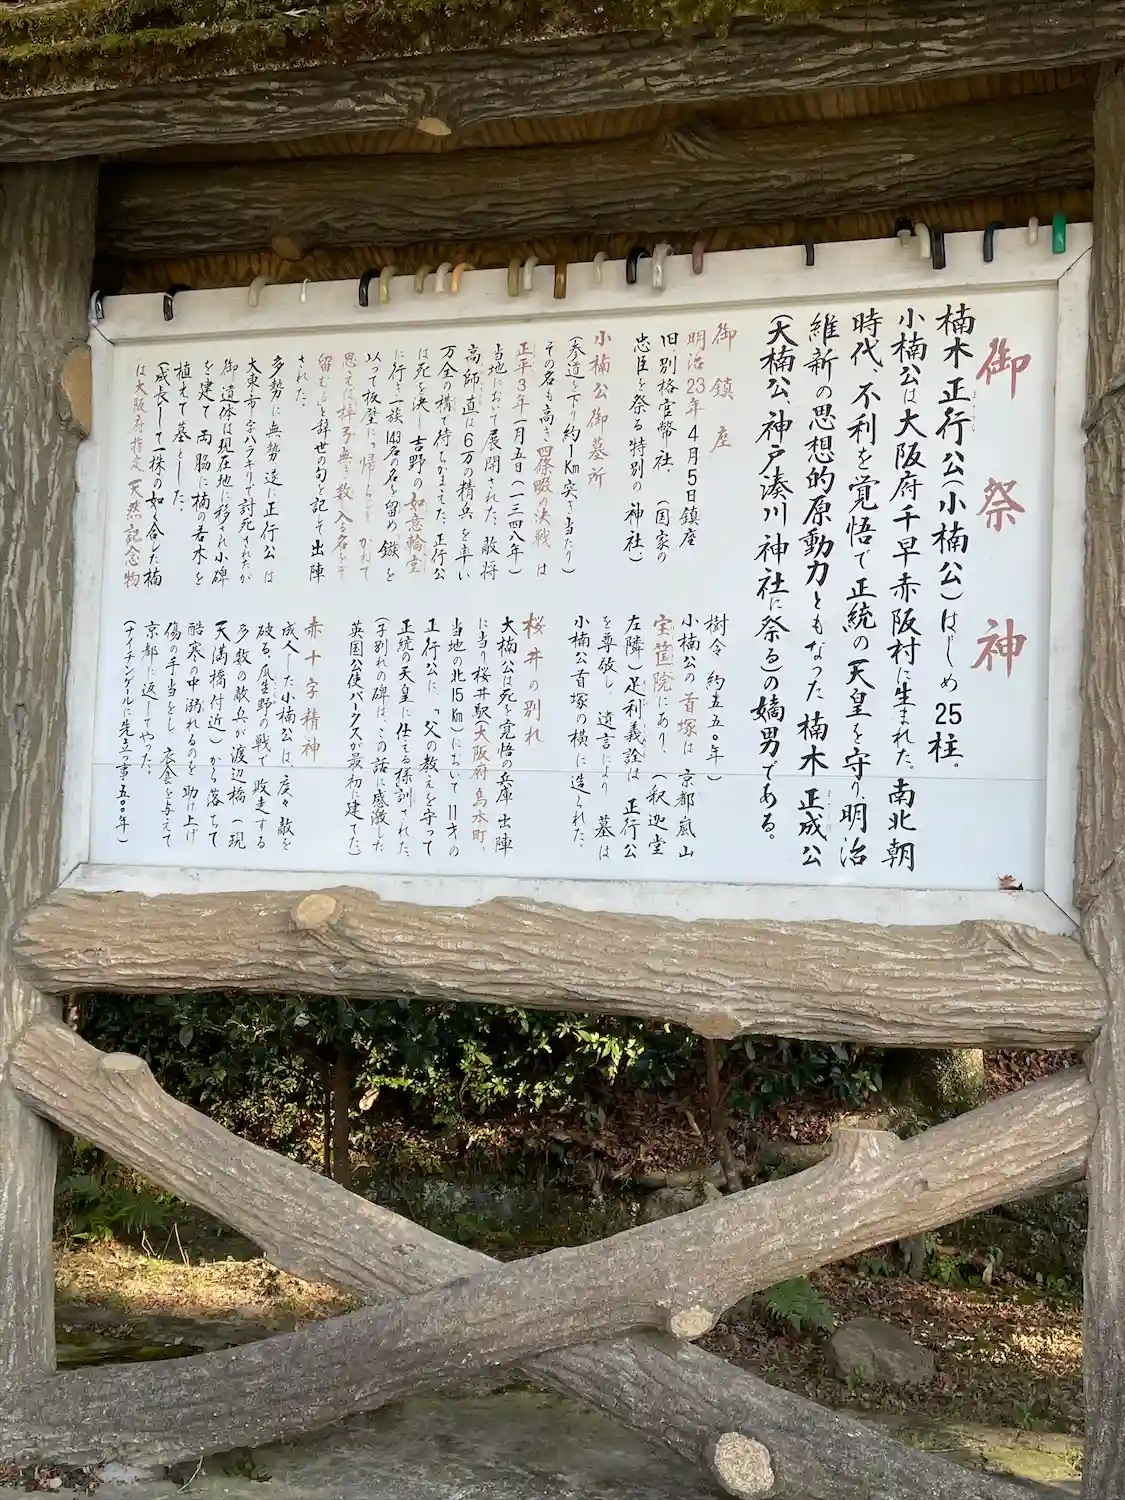 御祭神
楠木正行公(小楠公)はじめ25柱。
小楠公は大阪府千早赤阪村に生まれた。南北朝
時代、不利を覚悟で正統の天皇を守り、明治
維新の思想的原動力ともなった楠木正成公
(大楠公、神戸湊川神社に祭る)の嫡男である。
御鎮座
明治23年4月5日鎮座
旧別格官幣社、(国家の
忠臣を祭る特別の神社)
小楠公御墓所
(参道を下り約1Km突き当たり)
その名も高き四條畷の決戦は
正平3年一月五日(一三四八年)
当地において展開された。敵将
高師直は6万の精兵を率い
万全の構で待ちかまえた。正行公
は死を決し吉野の如意輪堂
に行き一族143名の名を留め鏃を
以って板壁に「帰らじとかねて
思えば梓弓無き数に入る名をぞ
留むる」と辞世の句を記して出陣
された。
多勢に無勢遂に正行公は
大東市字ハラキリで討死されたが
御遺体は現在地に移され小碑
を建て両脇に楠の若木を
植えて墓とした。
(成長して一株の如く合した楠
は大阪府指定天然記念物
樹令約五五〇年)
小楠公の首塚は京都嵐山
宝筐院にあり、(釈迦堂
左隣)足利義詮は正行公
を尊敬し遺言により墓は
小楠公首塚の横に造られた。
桜井の別れ
大楠公は死を覚悟の兵庫出陣
に当り桜井駅(大阪府島本町、
当地の北15km)において11才の
正行公に、「父の教えを守って
正統の天皇に仕える様」訓された。
(子別れの碑は、この話に感激した
英国公使パークスが最初に建てた)
赤十字精神
成人した小楠公は、度々敵を
破る。瓜生野の戦で敗走する
多数の敵兵が渡辺橋(現
天満橋付近)から落ちて
酷寒の中溺れるのを助け上げ
傷の手当をし、衣食を与えて
京都に返してやった。
(ナイチンゲールに先立つ事五〇〇年)